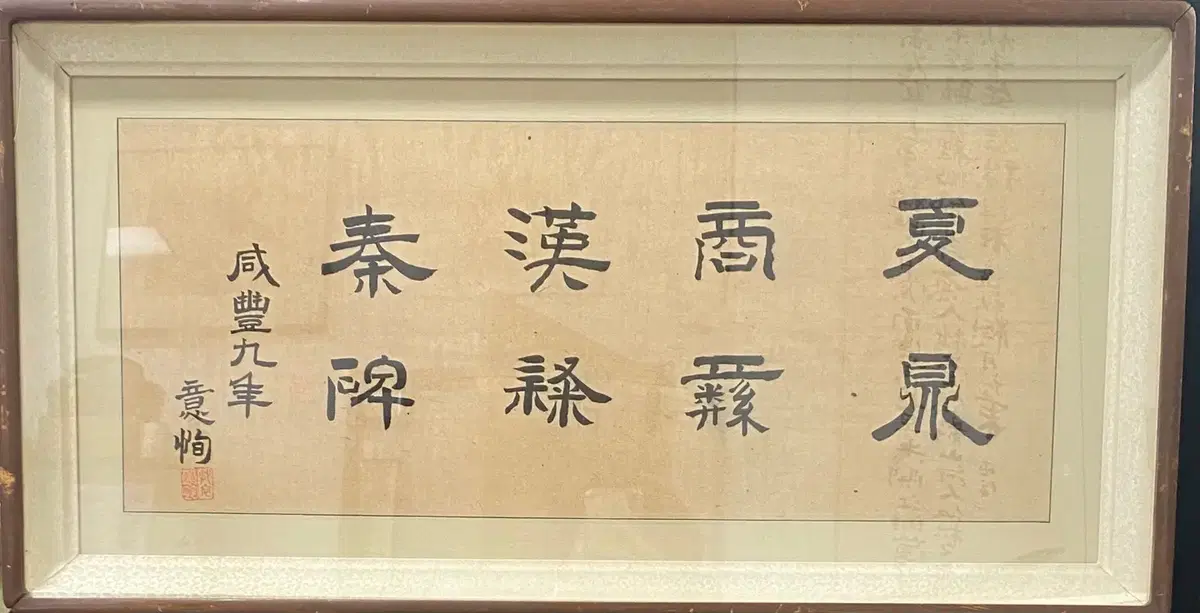 夏鼎
商彝
漢隸
秦碑
咸豐九年
意恂